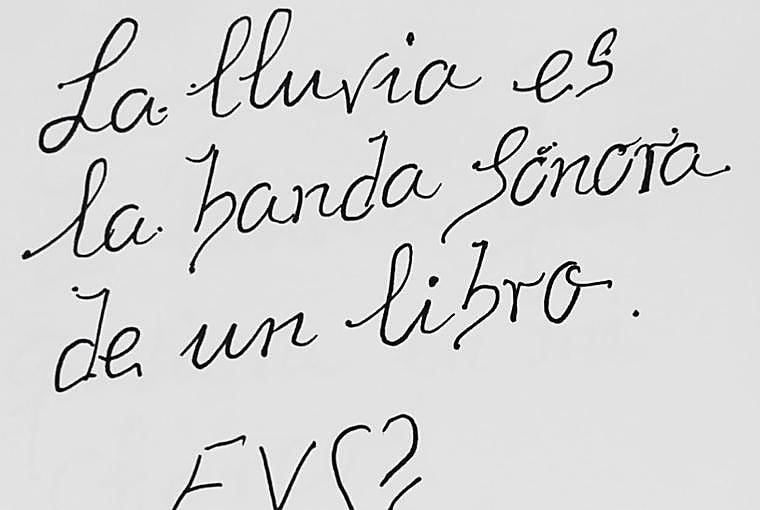 La lluvia es
la banda sonora
de un libro.